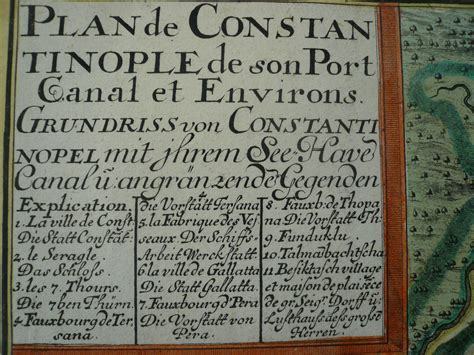 PLAN de CONSTAN
TINOPLE de son Port
Canal et Environs.
GRUNDRISS von CONSTANTI
NOPEL mit jhrem See-Have
Canal ŭ. angränzende Gegenden
Explication.
1. La ville de Const:
Die Statt Constät:
2. le Seragle.
Das Schloss.
3. les 7. Thours.
Die 7ben Thürn.
4. Fauxbourg de Ter-
sana.
die Vorstatt Tersana
5. la Fabrique des Ves
seaux. Der Schiffs-
Arbeit Werckstatt.
6. la ville de Gallatta
Die Statt Gallatta.
7. Fauxbourg de Pera
Die Vorstatt von
Pera.
8. Fauxb: de Thopa
na Die Vorstatt Th:
9. Funduklu.
10. Talmabachtscha
11. Besiktasch village
et maison de plaisẽce
de gr. Seigr. Dorff ŭ:
Lŭsthauss dess grosse
Herren.